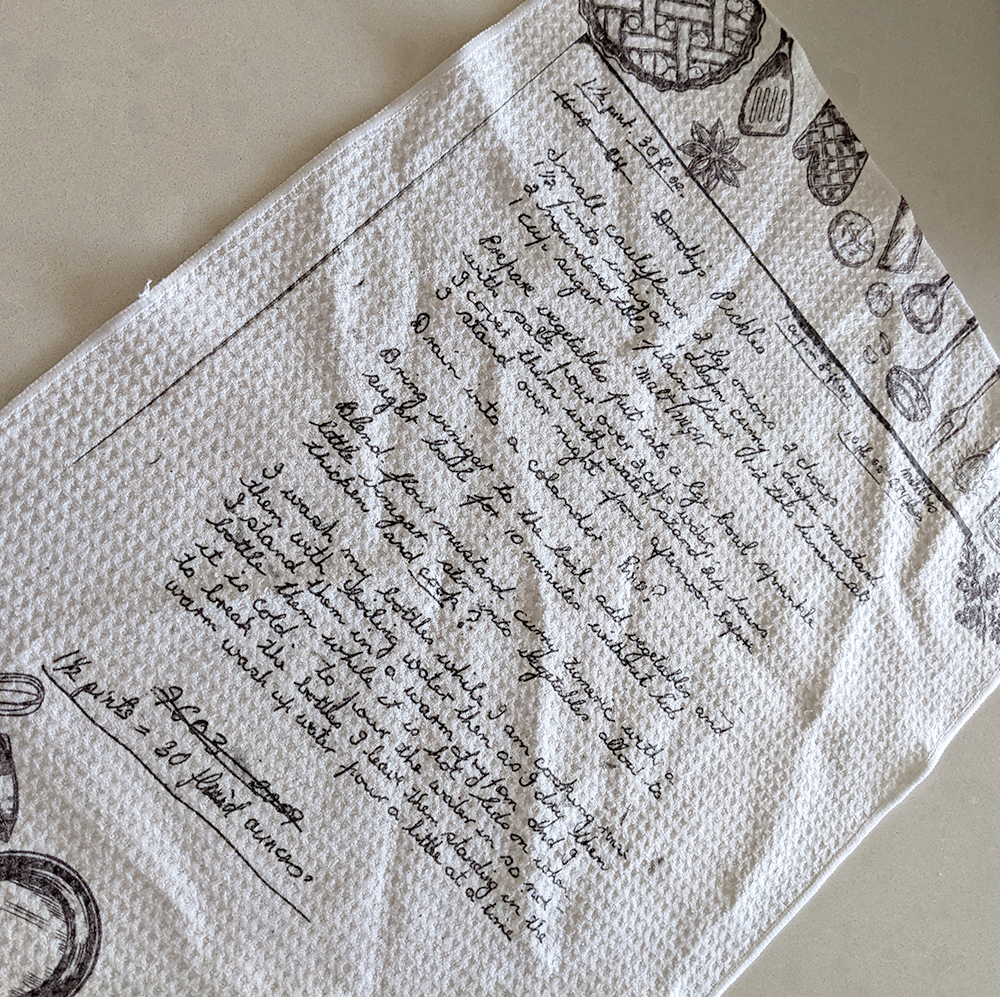 1½ pint. 30 fl. oz.
Dorothys Pickles
Small cauliflower 2 lge onions 2 chokos
1½ pints vinegar 1 dsspn curry 1 dsspn mustard
2 rounded tbls plain flour ½ tsp tumeric
1 cup sugar malt vinegar
Prepare vegetables put into a lge bowl sprinkle
with salt pour over 2 cups water
I cover them with water stand six hours.
stand over night from afternoon before.
Drain into a colander
Bring vinegar to the boil add vegetables and
sugar boil for 10 minutes without lid
Blend flour mustard curry tumeric with a
little vinegar and stir into vegetables allow to
thicken
I wash my bottles while I am cooking
them with boiling water then as I dry them
I stand them in a warm and I
bottle them while it is hot lids on when
it is cold. to pour the water in so not
to break the bottles I leave them standing in the
warm wash up water pour a little at a time
1½ pints = 30 fluid ounces.